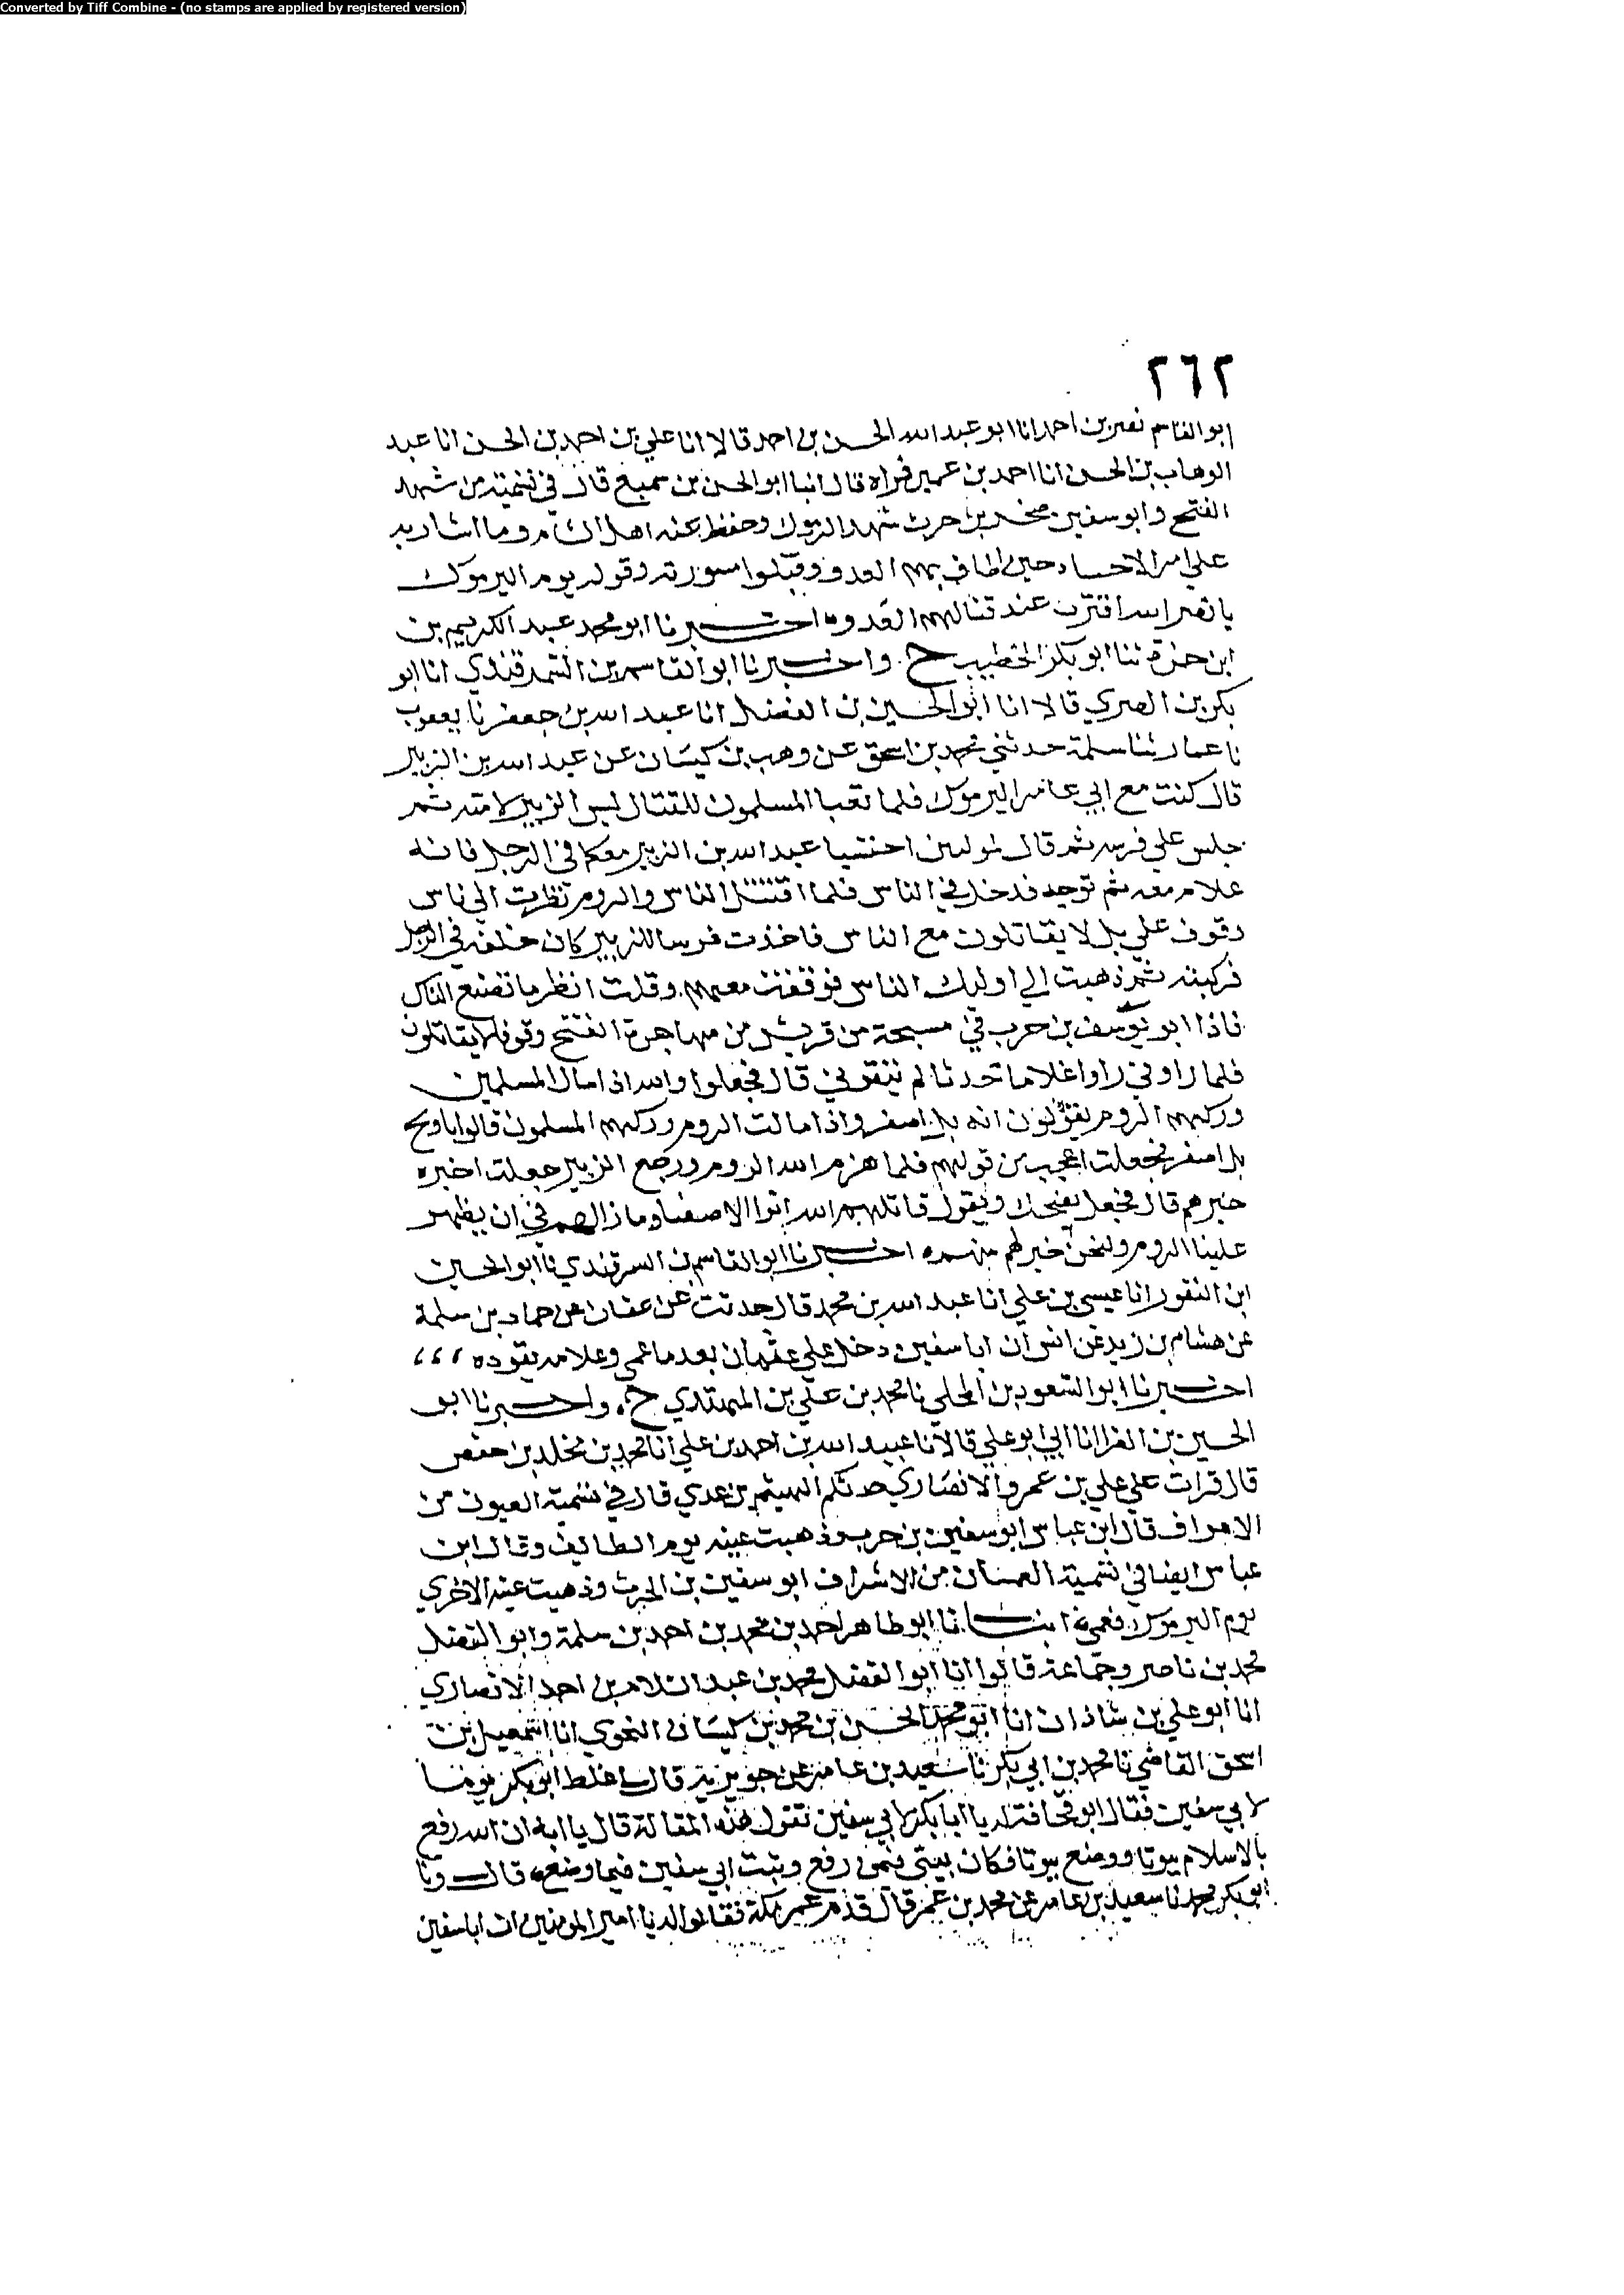 Converted by Tiff Combine - (no stamps are applied by registered version)
٢٦٢
ابو القاسم نصر بن احمد انا ابو عبد الله الحسن بن احمد قالا انا علي بن احمد بن الحسن انا عبد
الوهاب بن الحسن انا احمد بن عمير قراة قال انبا ابو الحسن بن سميع قال في تسمية من شهد
الفتح وابو سفين صخر بن حرب شهد اليرموك وحفظ عنه اهل الشام وما اشار به
علي امرا الاجناد حين اطاف بهم العدو وقبلوا مشورته وقوله يوم اليرموك
يا نصر الله اقترب عند قتالهم العدو اخبرنا ابو محمد عبد الكريم بن
ابن حمزة ثنا ابو بكر الخطيب ح واخبرنا ابو القاسم بن السمرقندي انا ابو
بكر بن الطبري قالا انا ابو الحسين بن الفضل انا عبد الله بن جعفر نا يعقوب
نا عمار ثنا سلمة حدثني محمد بن اسحق عن وهب بن كيسان عن عبد الله بن الزبير
قال كنت مع ابي عام اليرموك فلما تعبا المسلمون للقتال لبس الزبير لامته ثم
جلس علي فرسه ثم قال لموليين احتسبا عبد الله بن الزبير معكما في الرحل فانه
غلام معه ثم توجه فدخل في الناس فلما اقتتل الناس والروم نظرت الي ناس
وقوف علي تل لا يقاتلون مع الناس فاخذت فرسا للزبير كان خلفه في الرحل
فركبته ثم ذهبت الي اوليك الناس فوقفت معهم وقلت انظر ما تصنع الناس
فاذا ابو سفين بن حرب في مسيحة من قريش من مهاجرة الفتح وقوفا لا يقاتلون
فلما راوني راوا غلاما حدثا لم يتقوني قال فجعلوا والله اذا مال المسلمين
وركبهم الروم يقولون ايه بل اصفر واذا مالت الروم وركبهم المسلمون قالوا يا ويح
بل اصفر فجعلت اعجب من قولهم فلما هزم الله الروم ورجع الزبير جعلت اخبره
خبرهم قال فجعل يضحك ويقول قاتلهم الله ابوا الا ضغنا وماذا لهم في ان يظهر
علينا الروم ولنحن خير لهم منهم اخبرنا ابو القاسم بن السمرقندي نا ابو الحسين
ابن النقور انا عيسى بن علي انا عبد الله بن محمد قال حدثت عن عفان عن حماد بن سلمة
عن هشام بن زيد عن انس ان ابا سفين دخل علي عثمان بعد ما عمي وغلامه يقوده
اخبرنا ابو السعود بن المجلي نا محمد بن علي بن المهتدي ح واخبرنا ابو
الحسين بن الفرا انا ابي ابو علي قالا انا عبيد الله بن احمد بن علي انا محمد بن مخلد بن حفص
قال قرات علي علي بن عمرو الانصاري حدثكم الهيثم بن عدي قال في تسمية العيون من
الاشراف قال ابن عباس ابو سفين بن حرب وذهبت عينه يوم الطايف وقال ابن
عباس ايضا في تسمية العميان من الاشراف ابو سفين بن الحرث وذهبت عينه الاخري
يوم اليرموك فعمي انبانا ابو طاهر احمد بن محمد بن احمد بن سلمة وابو الفضل
محمد بن ناصر وجماعة قالوا انا ابو الفضل محمد بن عبد السلام بن احمد الانصاري
انا ابو علي بن شاذان انا ابو محمد الحسن بن محمد بن كيسان النحوي انا اسمعيل بن
اسحق القاضي نا محمد بن ابي بكر نا سعيد بن عامر عن جويرية قال اغلظ ابو بكر يوما
لابي سفين فقال ابو قحافة له يا ابا بكر لابي سفين تقول هذه المقالة قال يا ابه ان الله رفع
بالاسلام بيوتا ووضع بيوتا فكان بيتي فيمن رفع وبيت ابي سفين فيما وضع قال ونا
ابو بكر محمد نا سعيد بن عامر عن محمد بن عمر قال قدم عمر مكة فقالوا له يا امير المومنين ان ابا سفين